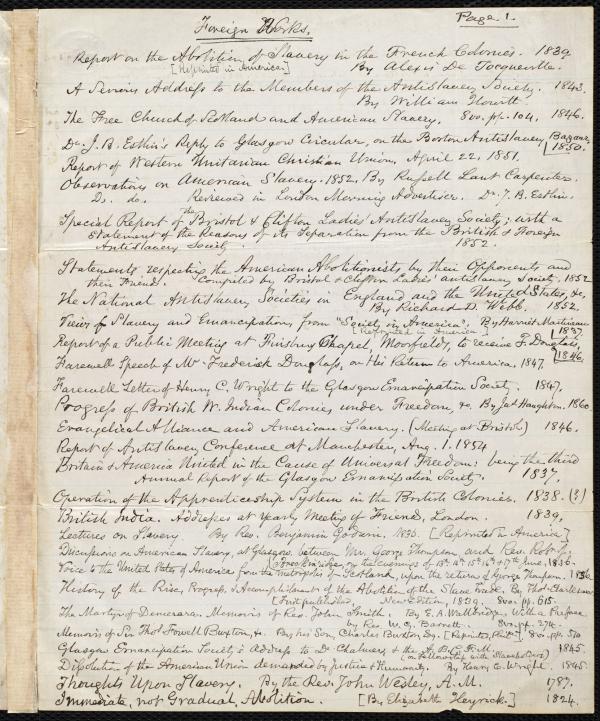 Page 1.
Foreign Works.
Report on the Abolition of Slavery in the French Colonies. 1839
[Reprinted in America] By Alexis De Tocqueville.
A Serious Address to the Members of the Antislavery Society. 1843.
By William Howitt.
The Free Church of Scotland and American Slavery. 8vo. pp. 104. 1846.
Dr. J. B. Estlin's Reply to Glasgow Circular, on the Boston Antislavery Bazaar.
1850.
Report of Western Unitarian Christian Union, April 22, 1851.
Observations on American Slavery. 1852. By Russell Lant Carpenter.
Do. do. Reviewed in London Morning Advertiser. Dr. J. B. Estlin.
Special Report of the Bristol & Clifton Ladies Antislavery Society; with a
Statement of the Reasons of its Separation from the British & Foreign
Antislavery Society. 1852.
Statements respecting the American Abolitionists, by their Opponents and
their Friends. Compiled by Bristol & Clifton Ladies' Antislavery Society. 1852
The National Antislavery Societies in England and the United States, &c.
By Richard D. Webb. 1852.
Views of Slavery and Emancipation, from "Society in America". By Harriet Martineau
[Reprinted in America.] 1837
Report of a Public Meeting at Finsbury Chapel, Moorfields, to receive F. Douglass,
1846.
Farewell Speech of Mr Frederick Douglass, on His Return to America. 1847.
Farewell Letter of Henry C. Wright to the Glasgow Emancipation Society. 1847.
Progress of British W. Indian Colonies under Freedom, &c. By Jas Haughton. 1860.
Evangelical Alliance and American Slavery. (Meeting at Bristol) 1846.
Report of Antislavery Conference at Manchester, Aug. 1. 1854
Britain & America United in the Cause of Universal Freedom: being the third
Annual Report of the Glasgow Emancipation Society. 1837.
Operation of the Apprenticeship System in the British Colonies. 1838. (3)
British India. Addresses at Yearly Meeting of Friends, London. 1839.
Lectures on Slavery. By Rev. Benjamin Godwin. 1830. [Reprinted in America.]
Discussion on American Slavery, at Glasgow, between Mr. George Thompson, and Rev. Robt J.
Breckinridge, on the evenings of 13th 14th 15th 16th & 17th June, 1836.
Voice to the United States of America from the metropolis of Scotland, upon the return of George Thompson. 1836
History of the Rise, Progress, & Accomplishment of the Abolition of the Slave Trade. By Thos Clarkson
[First published, New Edition, 1839. 8vo. pp. 615.
The Martyr of Demerara. Memoirs of Rev. John Smith. By E. A. Wallbridge. With a Preface
by Rev. W. G. Barrett. 8vo. pp. 274.
Memoirs of Sir Thos Fowell Buxton, &c. By his Son, Charles Buxton Esq. [Reprinted, Phil.] 8vo. pp. 510
Glasgow Emancipation Society's Address to Dr Chalmers, & the A. B. C. F. M. 1845.
(on Fellowship with Slaveholders)
Dissolution of the American Union demanded by Justice & Humanity. By Henry C. Wright. 1845.
Thoughts Upon Slavery. By the Rev. John Wesley, A.M. 1787.
Immediate, not Gradual, Abolition. [By Elizabeth Heyrick.] 1824.